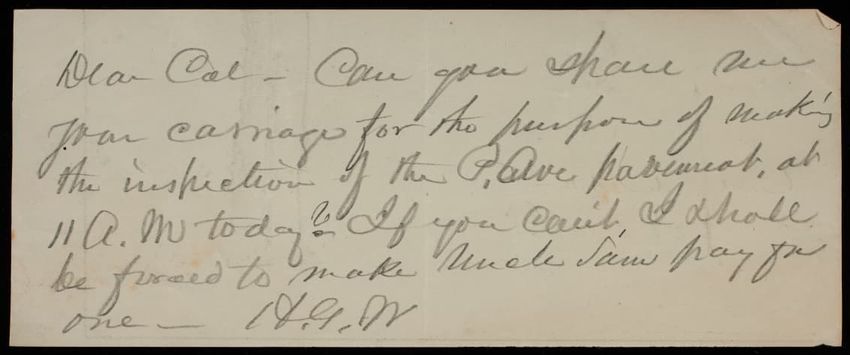 Dear Col - Can you spare me
your carriage for the purpose of making
the inspection of the P. Ave pavement, at
11 A.M today? If you can't, I shall
be forced to make Uncle Sam pay for
one - H.G.W